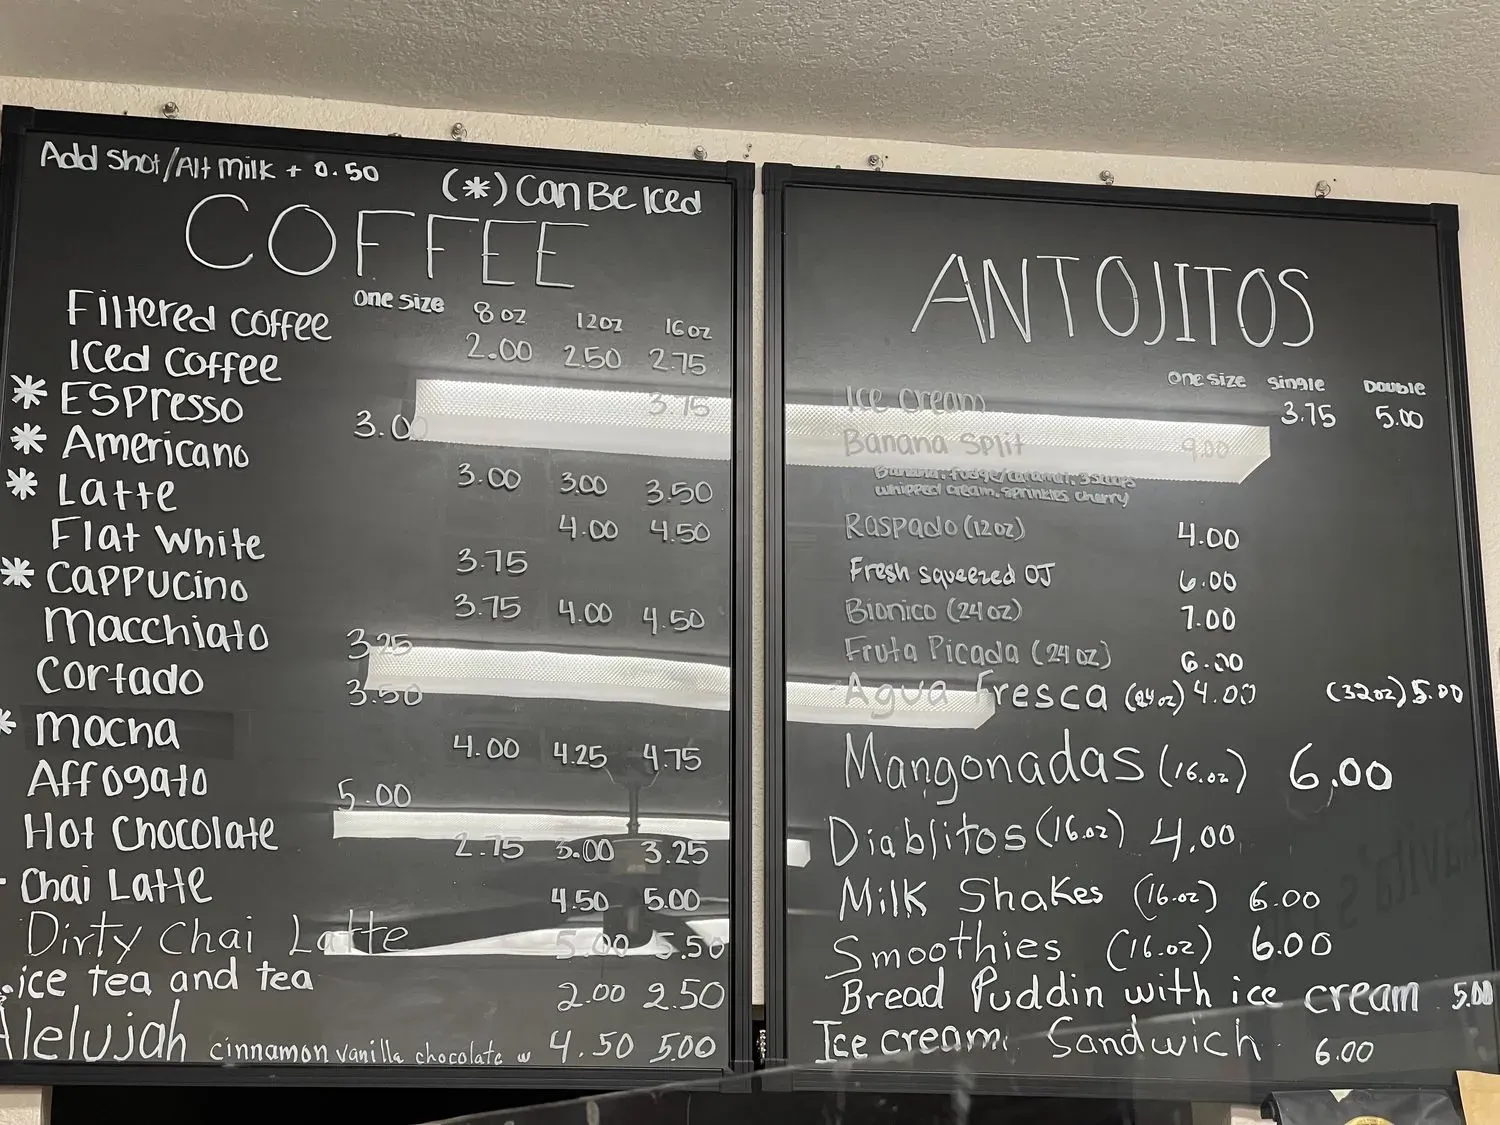 Add Shot/Alt Milk + 0.50
(*) Can Be Iced
COFFEE
One Size 8oz 12oz 16oz
Filtered Coffee 2.00 2.50 2.75
Iced Coffee 3.75
* Espresso 3.00
* Americano 3.00 3.00 3.50
* Latte 4.00 4.50
Flat White 3.75
* Cappucino 3.75 4.00 4.50
Macchiato 3.25
Cortado 3.50
* Mocha 4.00 4.25 4.75
Affogato 5.00
Hot Chocolate 2.75 3.00 3.25
Chai Latte 4.50 5.00
Dirty Chai Latte 5.00 5.50
ice tea and tea 2.00 2.50
Alelujah cinnamon vanilla chocolate w 4.50 5.00
ANTOJITOS
One Size Single Double
Ice Cream 3.75 5.00
Banana Split 9.00
Banana, fudge/caramel, 3 scoops
whipped cream, sprinkles cherry
Raspado (12oz) 4.00
Fresh Squeezed OJ 6.00
Bionico (24oz) 7.00
Fruta Picada (24oz) 6.00
Agua Fresca (24oz) 4.00 (32oz) 5.00
Mangonadas (16.oz) 6.00
Diablitos (16.oz) 4.00
Milk Shakes (16.oz) 6.00
Smoothies (16.oz) 6.00
Bread Puddin with ice cream 5.00
Ice cream Sandwich 6.00